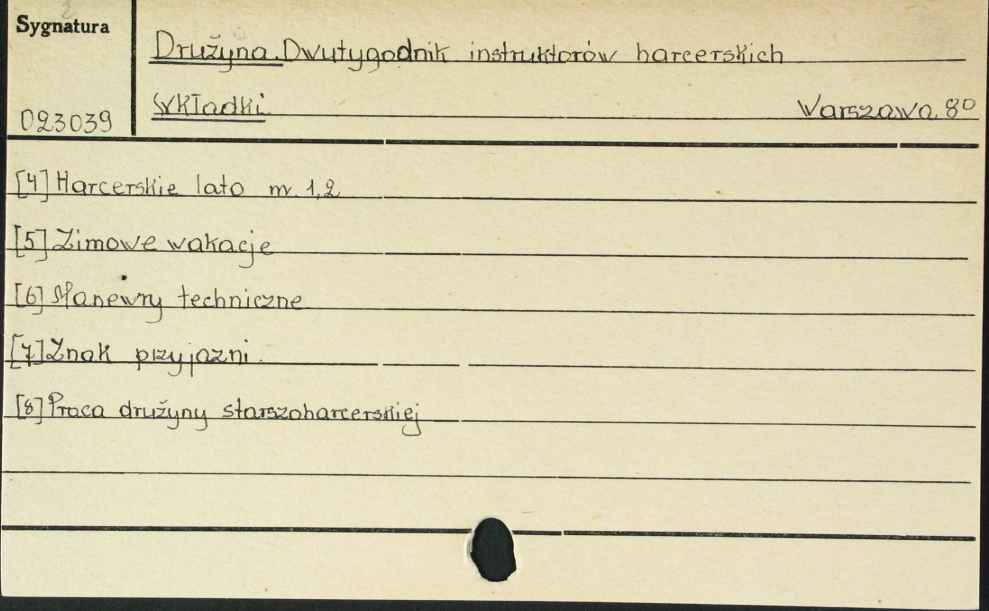 Sygnatura
Drużyna. Dwutygodnik instruktorów harcerskich
Wkładki Warszawa 8°
023039
[4] Harcerskie lato nr. 1,2
[5] Zimowe wakacje
[6] Manewry techniczne
[7] Znak przyjaźni.
[8] Praca drużyny starszoharcerskiej